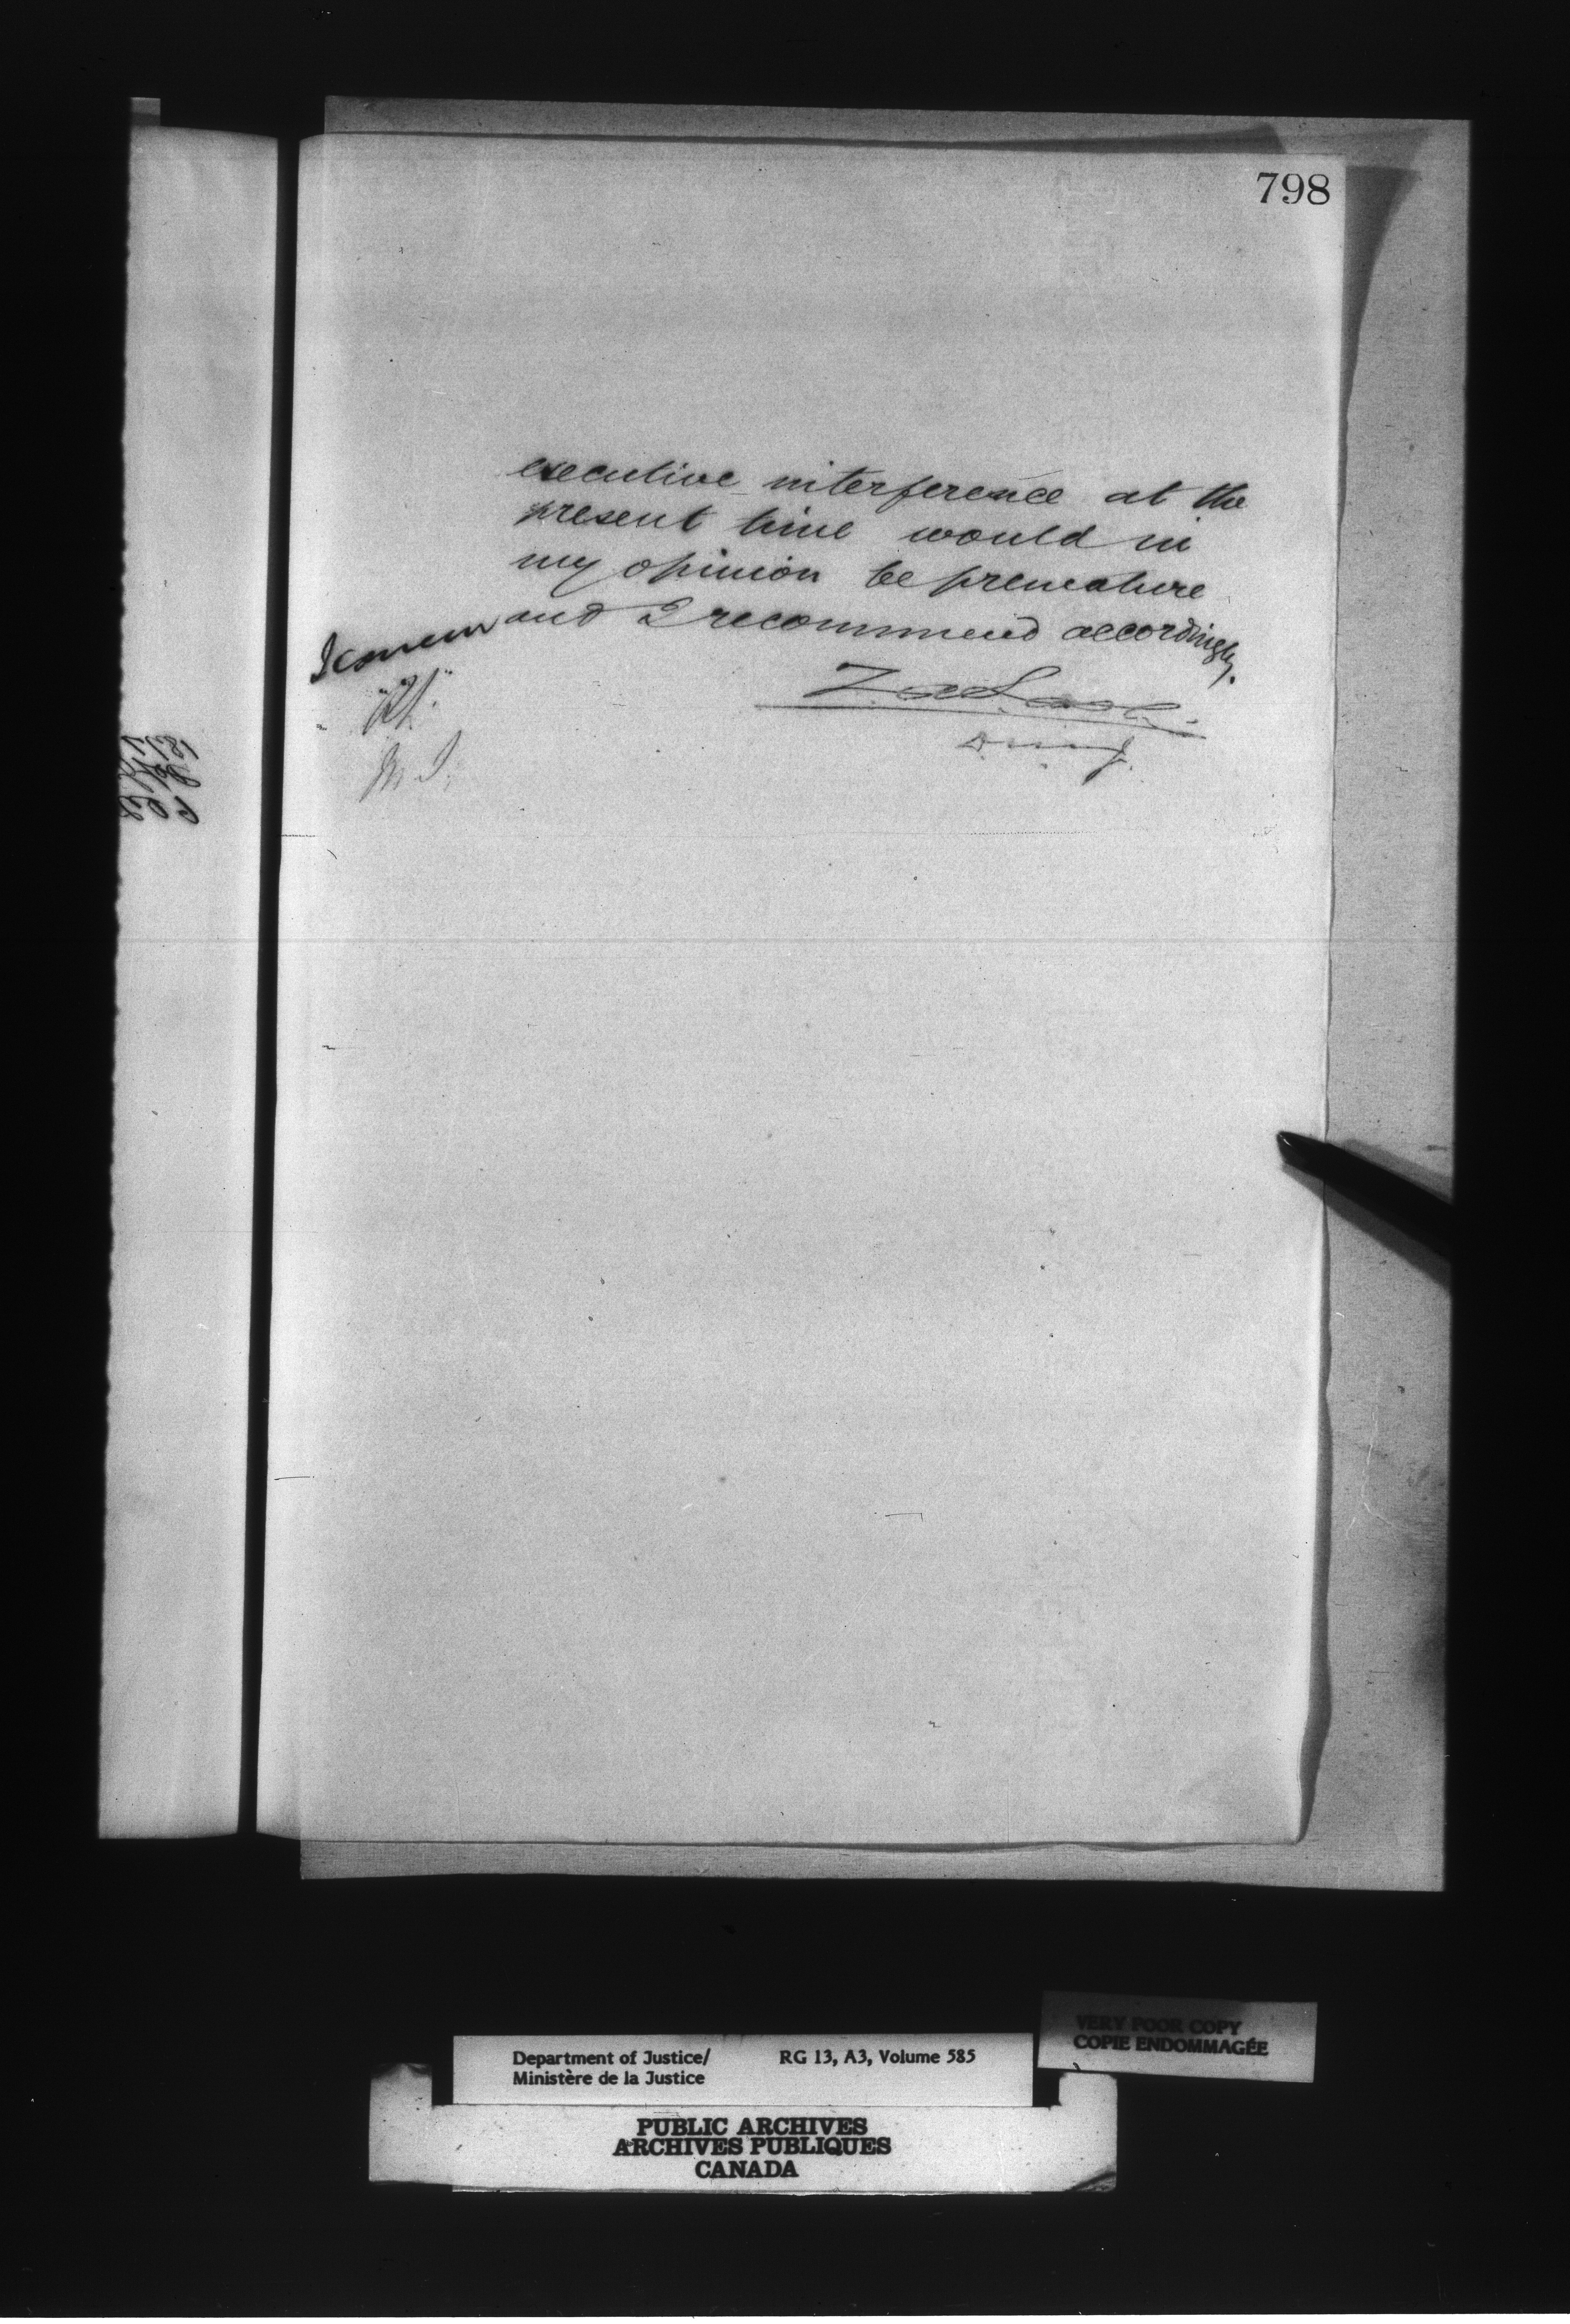 798
executive interference at the
present time would in
my opinion be premature
and I recommend accordingly.
I concur
Z. A. Lash
D. M. J.
M. J.
VERY POOR COPY
COPIE ENDOMMAGÉE
Department of Justice/ RG 13, A3, Volume 585
Ministère de la Justice
PUBLIC ARCHIVES
ARCHIVES PUBLIQUES
CANADA